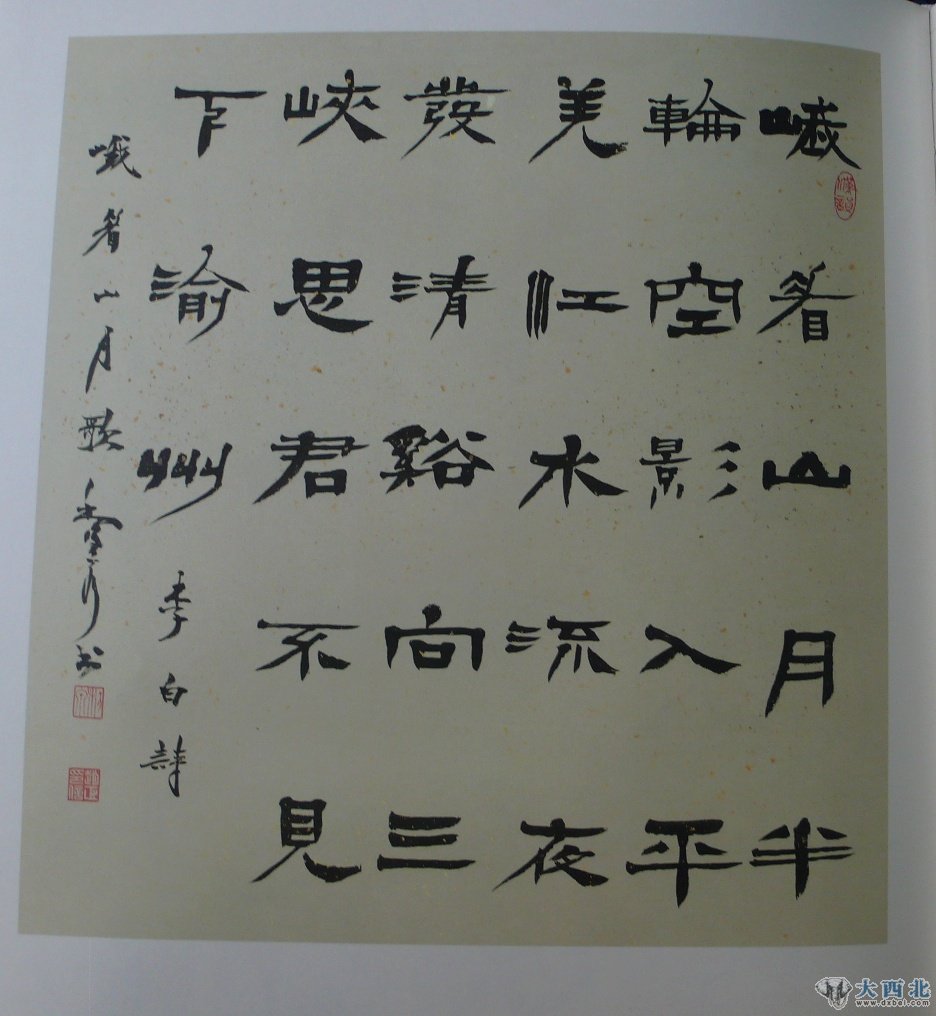 峨眉山月半
輪空影入平
羌江水流夜
發清谿向三
峽思君不見
下渝州 李白詩
峨眉山月歌 书
大西北
www.dxbei.com